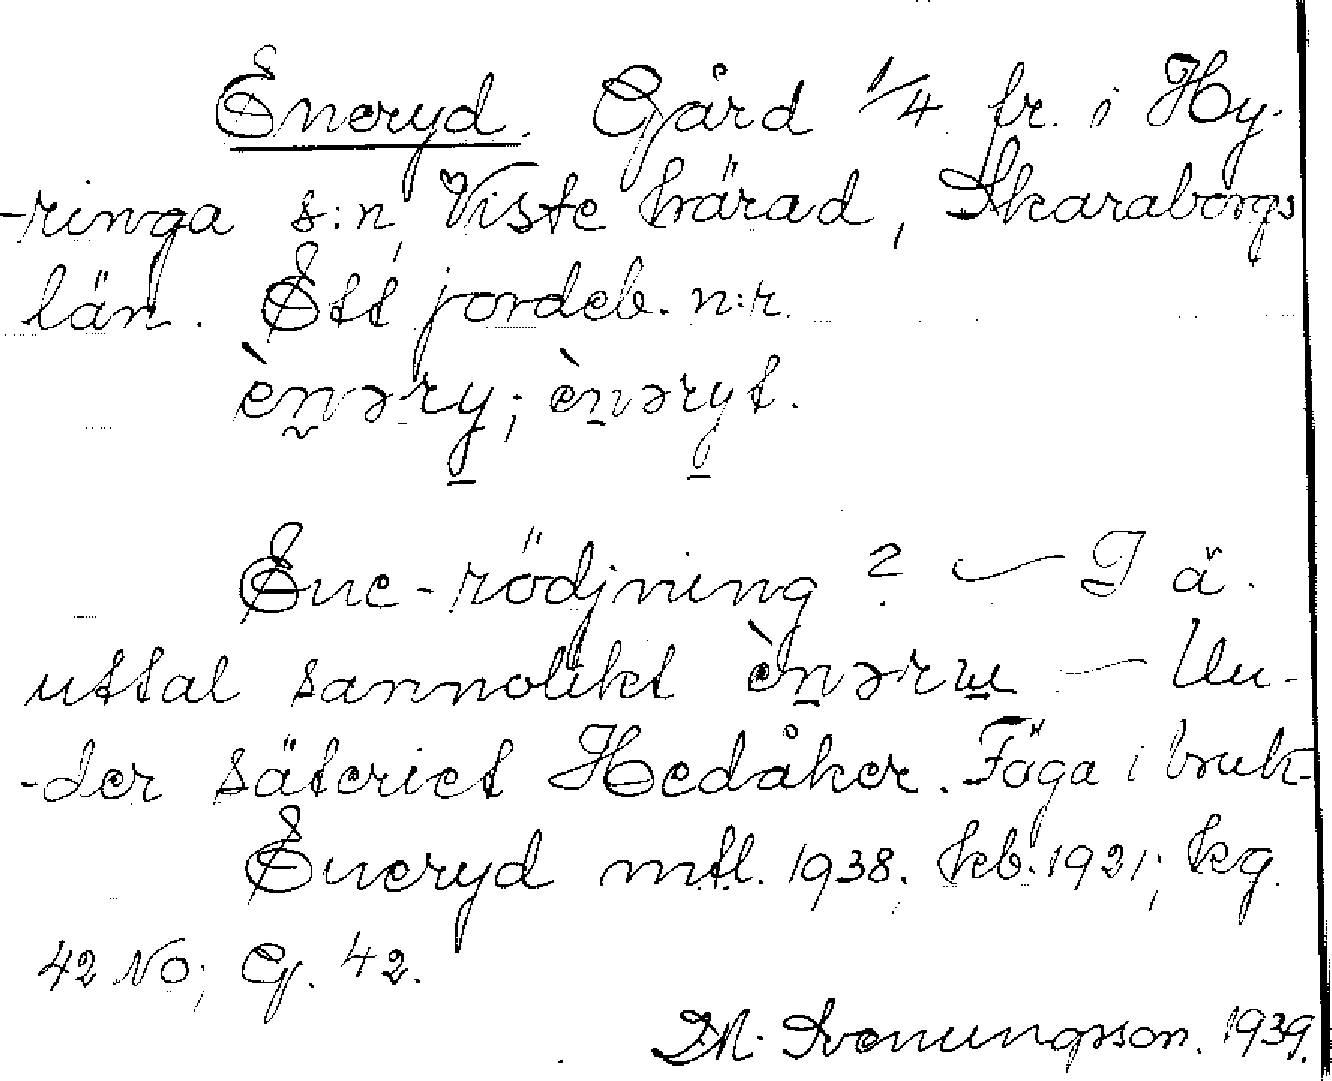 Eneryd. Gård 1/4 fr. i Hy-
-ringa s:n, Viste härad, Skaraborgs
län. Ett jordeb. n:r.
ènəry; ènəryt.
Ene-rödjning? — I ä.
uttal sannolikt ènərɯ — Un-
-der säteriet Hedåker. Föga i bruk.
Eneryd mtl. 1938; kb. 1921; kg.
42 NO; G. 42.
D.M. Svenungsson. 1939.